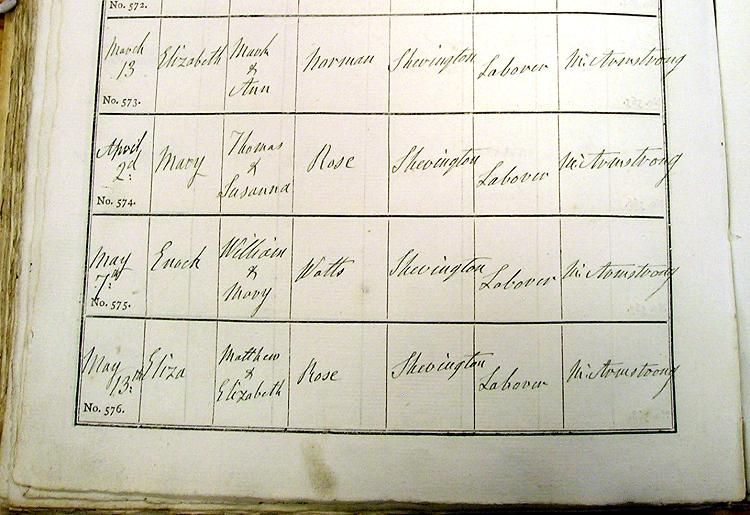 No. 572.
March
13
Elizabeth
Mark
&
Ann
Norman
Shevington
Labover
Wm Armstrong
No. 573.
April
2d
Mary
Thomas
&
Susanna
Rose
Shevington
Labover
Wm Armstrong
No. 574.
May
7th
Enoch
William
&
Mary
Watts
Shevington
Labover
Wm Armstrong
No. 575.
May
13th
Eliza
Matthew
&
Elizabeth
Rose
Shevington
Labover
Wm Armstrong
No. 576.